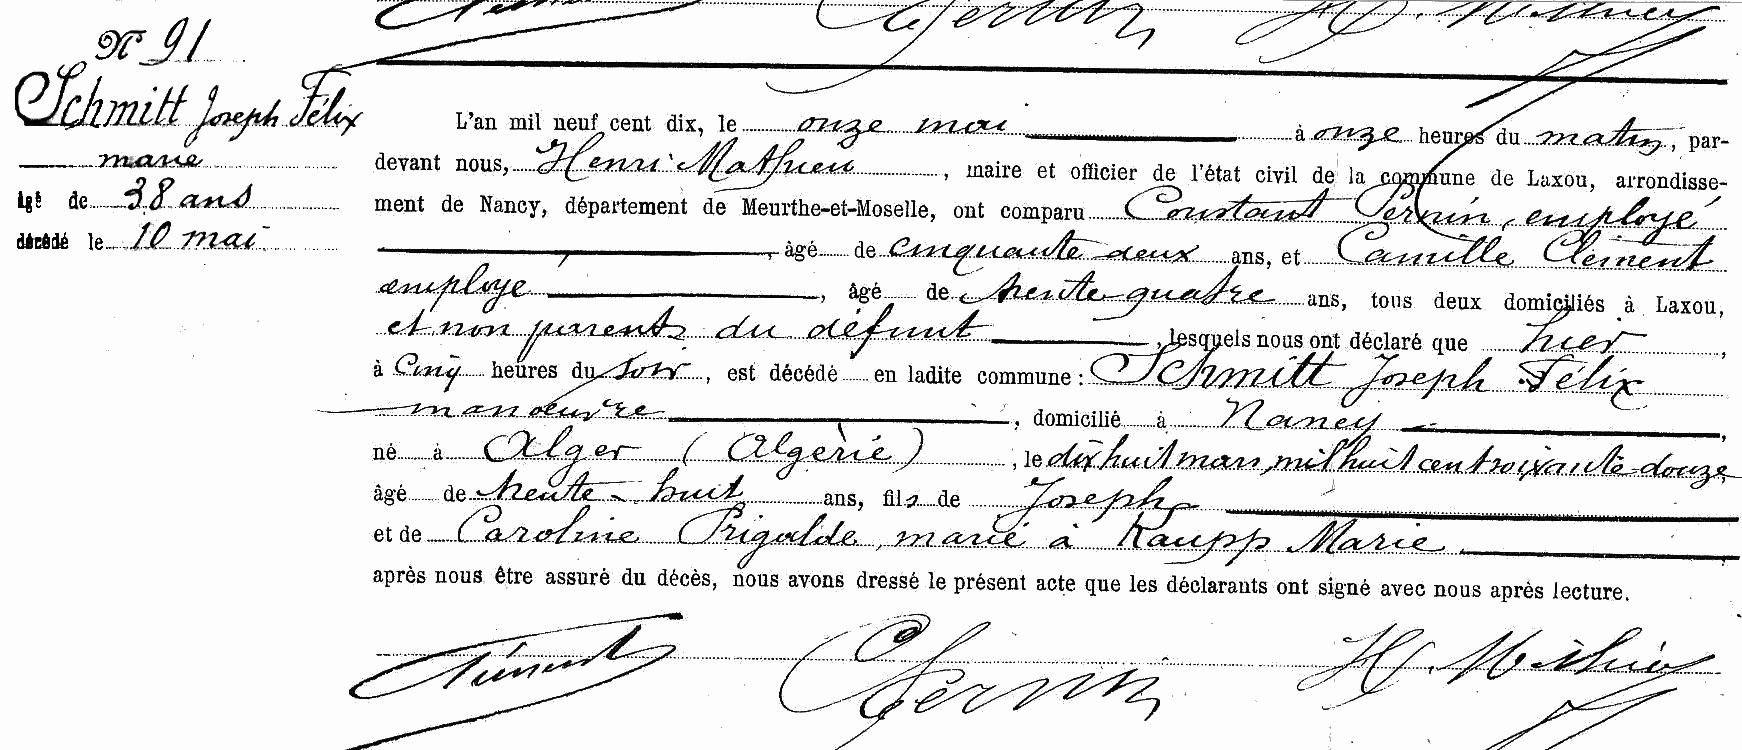 N° 91
Schmitt Joseph Félix
marié
âgé de 38 ans
décédé le 10 mai
L'an mil neuf cent dix, le onze mai à onze heures du matin, par-
devant nous, Henri Mathieu, maire et officier de l'état civil de la commune de Laxou, arrondisse-
ment de Nancy, département de Meurthe-et-Moselle, ont comparu Constant Pernin, employé
, âgé de cinquante deux ans, et Camille Clément
employé, âgé de trente-quatre ans, tous deux domiciliés à Laxou,
et non parents du défunt, lesquels nous ont déclaré que hier,
à cinq heures du soir, est décédé en ladite commune : Schmitt Joseph Félix
manoeuvre, domicilié à Nancy,
né à Alger (Algérie), le dix huit mars mil huit cent soixante douze,
âgé de trente-huit ans, fils de Joseph
et de Caroline Prigalde, marié à Kaupp Marie
après nous être assuré du décès, nous avons dressé le présent acte que les déclarants ont signé avec nous après lecture.
Clément Pernin H. Mathieu